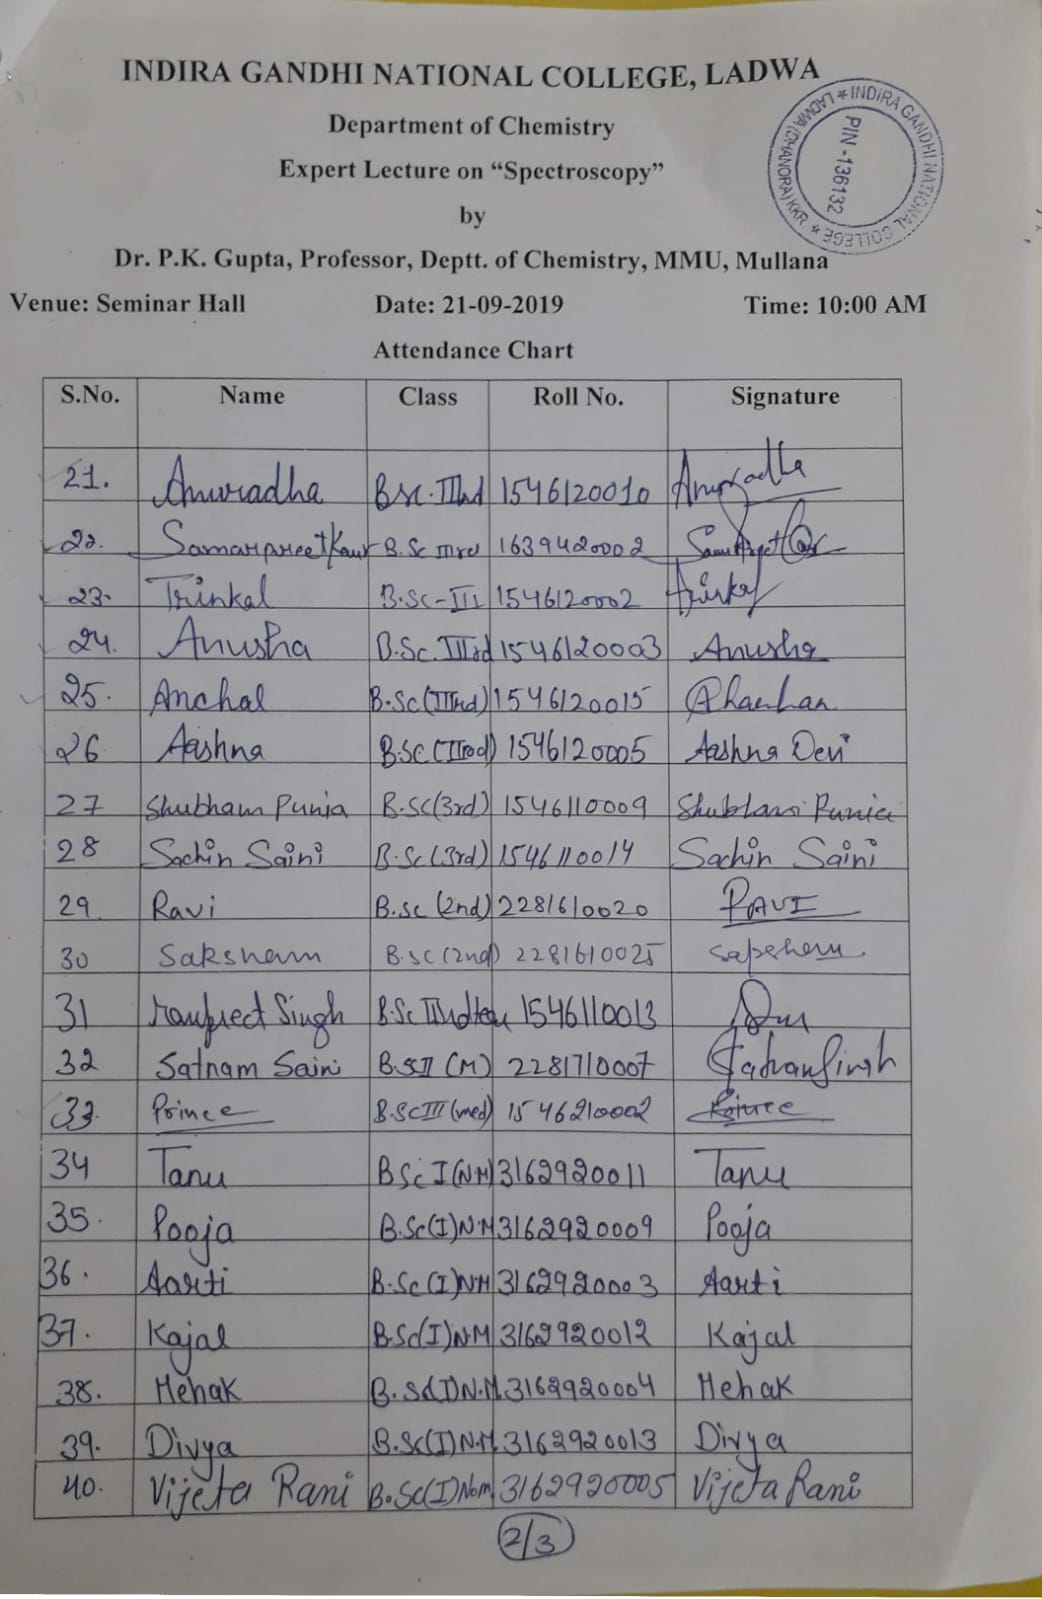 INDIRA GANDHI NATIONAL COLLEGE, LADWA
Department of Chemistry
Expert Lecture on “Spectroscopy”
by
Dr. P.K. Gupta, Professor, Deptt. of Chemistry, MMU, Mullana
INDIRA GANDHI NATIONAL COLLEGE * LADWA (DHANORA) KKR. *
PIN - 136132
Venue: Seminar Hall Date: 21-09-2019 Time: 10:00 AM
Attendance Chart
S.No. Name Class Roll No. Signature
21. Anuradha BSc. IIIrd 1546120010 Anuradha
22. Samarpreet Kaur B.Sc IIIrd 1639420002
23. Trinkal B.Sc-III 1546120002 Trinkal
24. Anusha B.Sc. IIIrd 1546120003 Anusha
25. Anchal B.Sc(IIIrd) 1546120015
26 Aashna B.Sc (IIIrd) 1546120005 Aashna Devi
27 Shubham Punia B.Sc(3rd) 1546110009 Shubham Punia
28 Sachin Saini B.Sc(3rd) 1546110014 Sachin Saini
29 Ravi B.Sc (2nd) 2281610020 RAVI
30 Saksham B.SC (2nd) 2281610025
31 Manpreet Singh B.Sc IIIrd 1546110013
32 Satnam Saini B.SII (M) 2281710007
33. Prince B.ScIII (med) 1546210002 Prince
34 Tanu BSc I(NM) 3162920011 Tanu
35. Pooja B.Sc(I)N.M 3162920009 Pooja
36. Aarti B.Sc(I)NM 3162920003 Aarti
37. Kajal B.Sc(I)NM 3162920012 Kajal
38. Mehak B.Sc(I)N.M. 3162920004 Mehak
39. Divya B.Sc(I)N.M. 3162920013 Divya
40. Vijeta Rani B.Sc(I)Nom 3162920005 Vijeta Rani
2/3